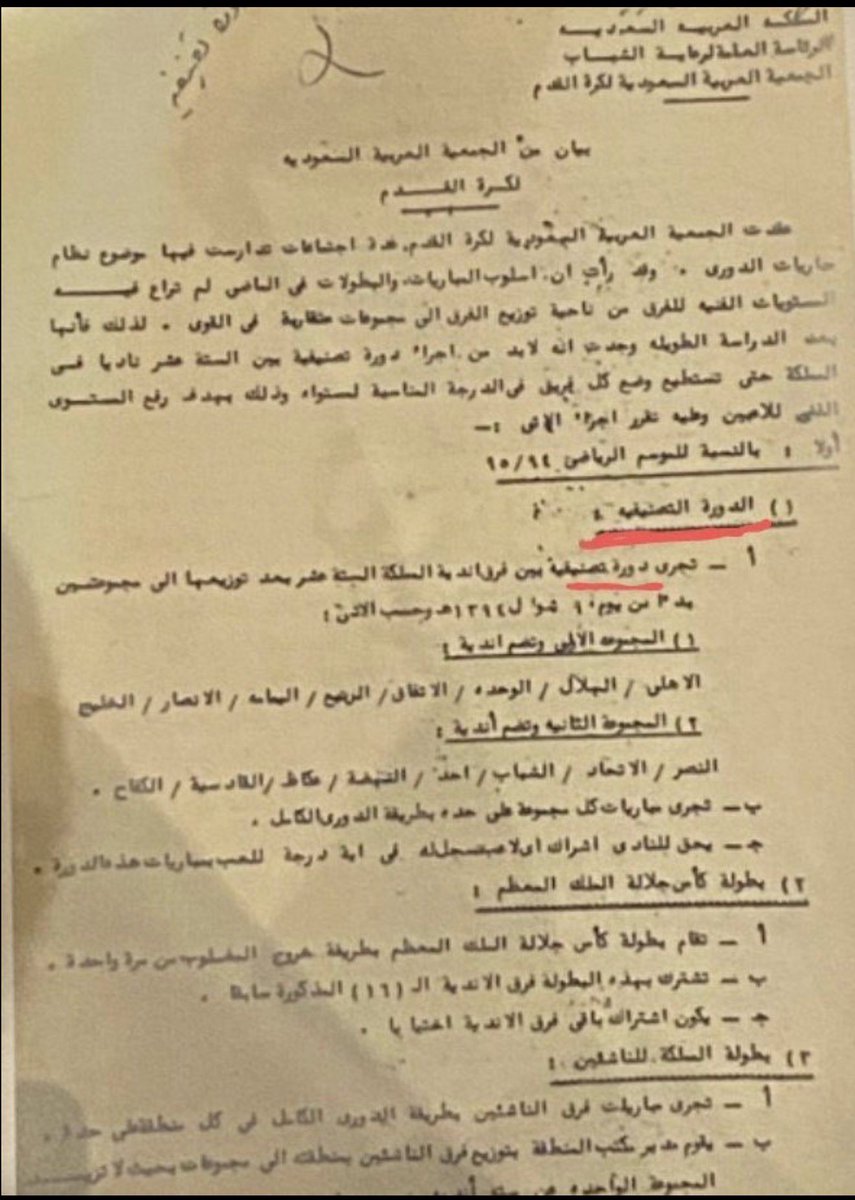 المملكة العربيه السعوديه
الرئاسة العامة لرعاية الشباب
الجمعية العربية السعودية لكرة القدم
بيان من الجمعية العربية السعوديه
لكرة القدم
عقدت الجمعية العربية السعودية لكرة القدم عدة اجتماعات تدارست فيها موضوع نظام
مباريات الدورى . وقد رأت ان اسلوب المباريات والبطولات فى الماضى لم تراع فيه
المستويات الفنيه للفرق من ناحية توزيع الفرق الى مجموعات متقاربة فى القوى . لذلك فأنها
بعد الدراسة الطويله وجدت انه لابد من اجراء دورة تصنيفية بين الستة عشر ناديا فى
المملكة حتى تستطيع وضع كل فريق فى الدرجة المناسبة لمستواه وذلك بهدف رفع المستوى
الفنى للاعبين وعليه تقرر اجراء الاتى :ـ
أولا : بالنسبة للموسم الرياضى ٩٥/٩٤
١) الدورة التصنيفيه :
أ ـ تجرى دورة تصنيفية بين فرق اندية المملكة الستة عشر بعد توزيعها الى مجموعتين
من يوم شوال ١٣٩٤هـ وحسب الاتى :
١) المجموعه الأولى وتضم اندية :
الاهلى / الهلال / الوحده / الاتفاق / الربيع / اليمامه / الانصار / الخليج
٢) المجموعة الثانيه وتضم أندية :
النصر / الاتحاد / الشباب / احد / النهضة / عكاظ / القادسية / الكفاح .
ب ـ تجرى مباريات كل مجموعة على حده بطريقة الدورى الكامل .
جـ ـ يحق للنادى اشراك اى لاعب مسجل له فى اية درجة للعب بمباريات هذه الدورة .
٢) بطولة كأس جلالة الملك المعظم :
أ ـ تقام بطولة كأس جلالة الملك المعظم بطريقة خروج المغلوب من مرة واحدة .
ب ـ تشترك بهذه البطولة فرق الاندية الـ (١٦) المذكورة سابقا .
جـ ـ يكون اشتراك باقى فرق الاندية اختياريا .
٣) بطولة المملكة للناشئين :
أ ـ تجرى مباريات فرق الناشئين بطريقة الدورى الكامل فى كل منطقة على حدة .
ب ـ يقوم مدير مكتب المنطقة بتوزيع فرق الناشئين بمنطقته الى مجموعات بحيث لا تزيد
المجموعة الواحده عن ستة أندية